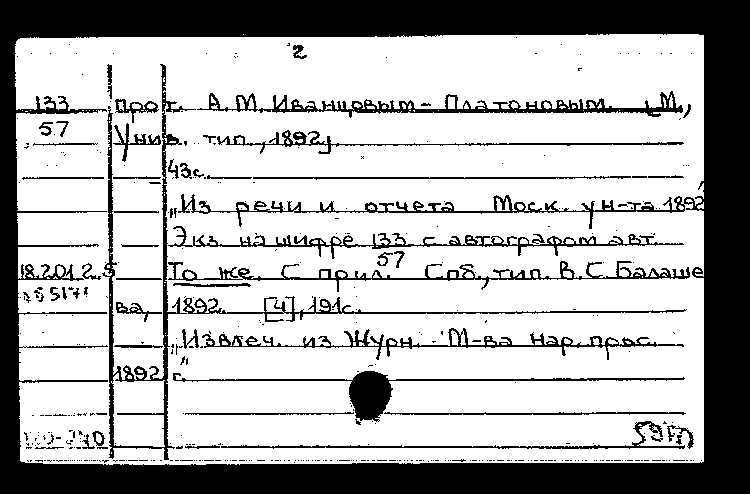 2
133 прот. А.М. Иванцовым-Платоновым. [М.,
57 Унив. тип., 1892].
43с.
„Из речи и отчета Моск. ун-та 1892"
Экз. на шифре 133/57 с автографом авт.
18.201.2.5 То же. С прил. Спб., тип. В.С. Балаше
ва, 1892. [4], 191с.
„Извлеч. из Журн. М-ва нар. прос.
1892 г."